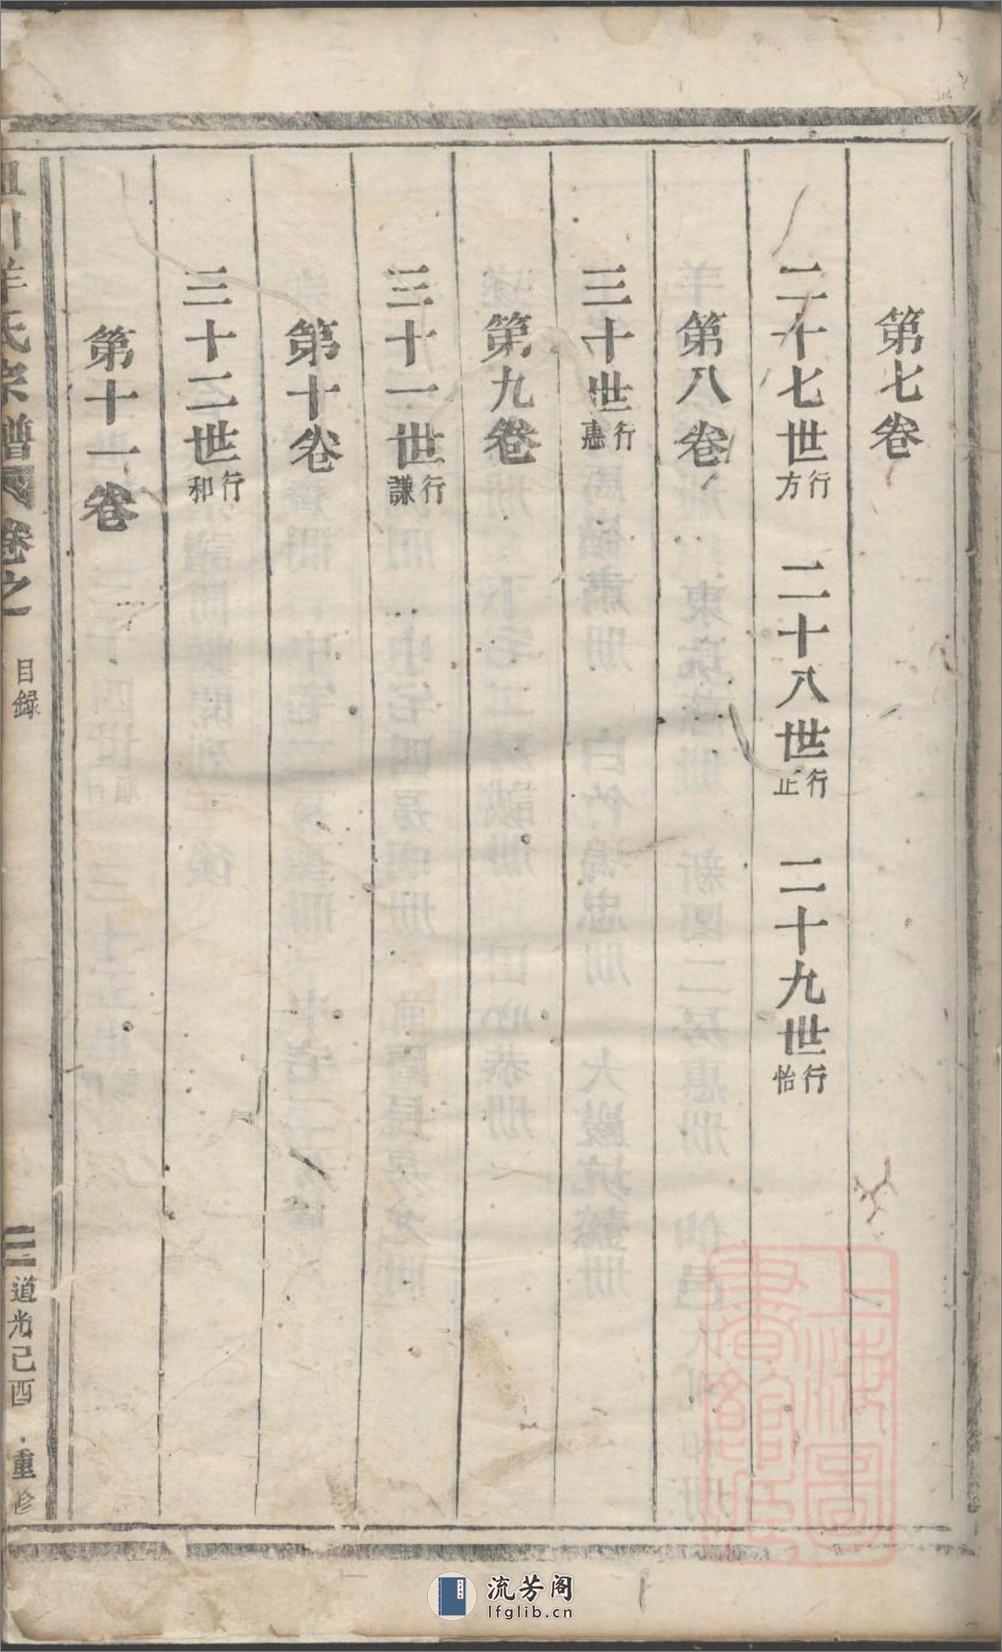 第七卷
二十七世行方 二十八世行正 二十九世行怡
第八卷
三十世行惠
第九卷
三十一世行謙
第十卷
三十二世行和
第十一卷
羊氏宗譜 卷之一 目録 三 道光己酉 重修
上海圖書館藏
流芳阁
lfglib.cn